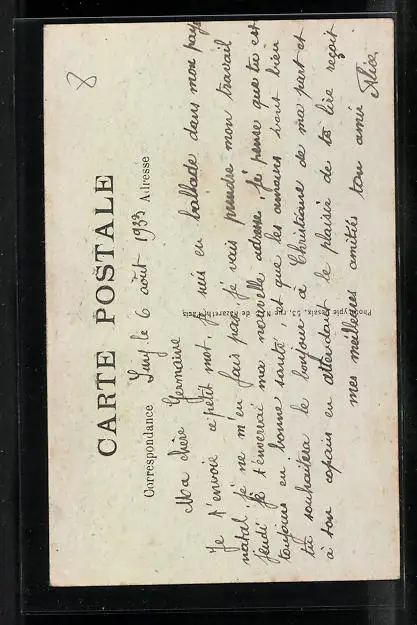 8
CARTE POSTALE
Correspondance
Adresse
Lury le 6 août 1933
Ma chère Germaine
Je t'envoie ce petit mot, je suis en ballade dans mon pays
natal, je ne m'en fais pas, je vais prendre mon travail
jeudi je t'enverrai ma nouvelle adresse, je pense que tu est
toujours en bonne santé, et que les amours vont bien
tu souhaitera le bonjour à Christiane de ma part et
à son copain en attendant le plaisir de te lire reçoit
mes meilleures amitiés ton amie Alice
Phototypie Vassix, 53, rue N. de Nazareth Paris